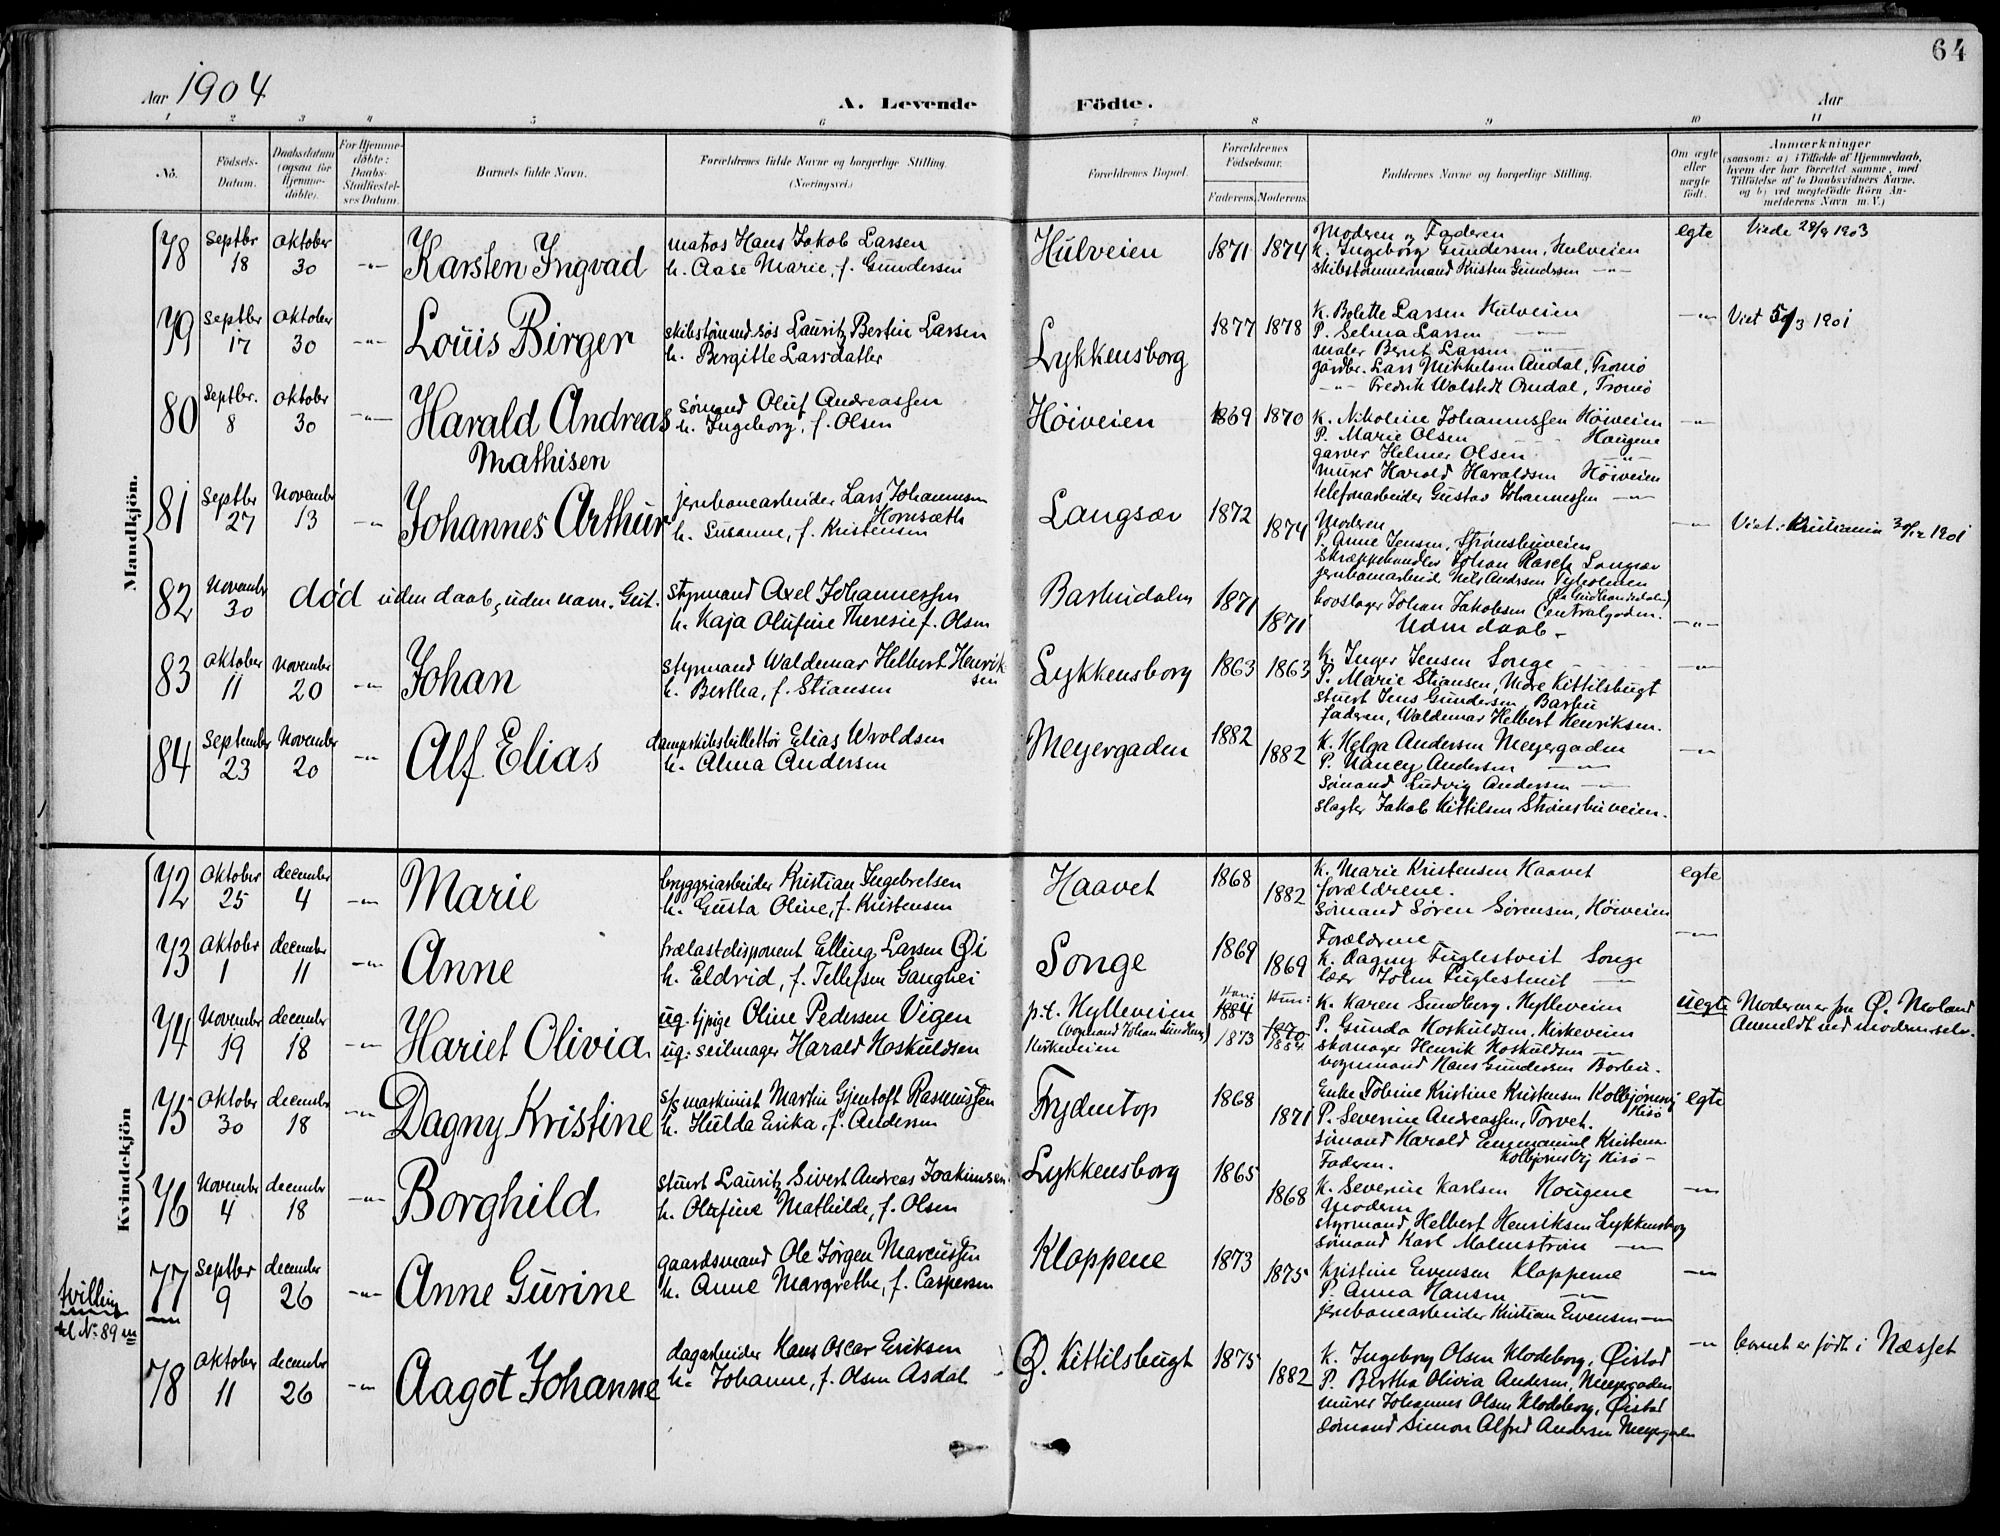 64
Aar 1904
A. Levende Födte.
Aar
1 2 3 4 5 6 7 8 9 10 11
No.
Födsels-Datum.
Daabsdatum (ogsaa for Hjemme-döbte).
For Hjemme-döbte: Daabs-Stadfæstel-ses Datum.
Barnets fulde Navn.
Forældrenes fulde Navne og borgerlige Stilling. (Næringsvei.)
Forældrenes Bopæl.
Forældrenes Födselsaar.
Faderens. Moderens.
Faddernes Navne og borgerlige Stilling.
Om ægte eller uægte födt.
Anmærkninger
(saasom: a) i Tilfælde af Hjemmedaab, hvem der har forrettet samme, med Tilföielse af to Daabsvidners Navne, og b) ved uægtefödte Börn An-melderens Navn m. V.)
Mandkjön.
78 Septbr 18 Oktober 30 -"- Karsten Ingvad
matros Hans Jakob Larsen
h. Aase Marie, f. Gundersen
Hulveien 1871 1874
Moderen og Faderen
K. Ingeborg Gundersen, Hulveien
skibstømmermand Kristen Gundersen -"-
egte Viede 29/9 1903
79 Septbr 17 Oktober 30 -"- Louis Birger
skibstømmd. søs Lauritz Bertin Larsen
h. Bergitte Larsdatter
Lykkensborg 1877 1878
K. Bolette Larsen Hulveien
P. Selma Larsen -"-
maler Bernt Larsen -"-
gårdbr. Lars Mikkelsen Andal, Tromø
-"- Fredrik Walstedt Andal, Tromø
-"- Viet 5/3 1901
80 Septbr. 8 Oktober 30 -"- Harald Andreas Mathisen
sømand Oluf Andreassen
h. Ingeborg, f. Olsen
Höiveien 1869 1870
K. Nikoline Johannessen Höiveien
P. Marie Olsen Hougene
garver Helmer Olsen -"-
murer Harold Haraldsen Höiveien
telefonarbeider Gustav Johannessen -"-
-"-
81 Septbr 27 November 13 -"- Johannes Arthur
jernbanearbeider Lars Johannesen Hornsæth
h. Susanne, f. Kristensen
Langsæv 1872 1874
Moderen
P. Anne Jensen, Strømsbuveien
Johan Langsæv
jernbanearbeid Nils Andersen Tyholmen
hovslager Johan Jakobsen Centralgaden.
-"- Viet i Kristiania 30/12 1901
82 November 30 død uden daab, uden navn.
styrmand Axel Johannessen
h. Kaja Olufine Theresie f. Olsen
Barbudalen 1871 1871
Uden daab -
-"-
83 Oktober 11 November 20 -"- Johan
styrmand Waldemar Helbert Henriksen
h. Bertha, f. Stiansen
Lykkensborg 1863 1863
K. Inger Jensen Songe
P. Marie Stiansen, Ndre Kittilsbugt
stuert Jens Gundersen, Barbu
faderen, Waldemar Helbert Henriksen.
-"-
84 September 23 November 20 -"- Alf Elias
dampskibsbilletør Elias Wroldsen
h. Alma Andersen
Meyergaden 1882 1882
K. Helga Andersen Meyergaden
P. Nancy Andersen -"-
Sømand Ludvig Andersen -"-
slagter Jakob Kittilsen Strømsbuveien.
-"-
Kvindekjön
72 Oktober 25 december 4 -"- Marie
bryggeriarbeider Kristian Ingebretsen
h. Gusta Oline, f. Kristensen
Haavet 1868 1882
K. Marie Kristensen Haavet
forældrene.
Sømand Søren Sørensen, Höiveien
egte
73 Oktober 1 december 11 -"- Anne
trælastdisponent Elling Larsen Øi
h. Eldrid, f. Tellefsen
Songe 1869 1869
Forældrene
K. Dagny Fuglestveit Songe
John Fuglestveit -"-
-"-
74 November 19 december 18 -"- Hariet Olivia
ug. tjpige Oline Pedersen Vigen
ug. seilmager Harald Hoskuldsen
p.t. Hylleveien
(vognmand Johan Sundberg)
Kirkeveien
Hun: 1884 1873
K. Karen Sundberg, Hylleveien
P. Gunda Hoskuldsen, Kirkeveien
skomager Henrik Hoskuldsen -"-
vognmand Hans Gundersen Barbu.
uegte Moderen er fra Ø. Moland
Anmeldt ved moderen selv.
75 Oktober 30 december 18 -"- Dagny Kristine
s/s maskinist Martin Gjentoft Rasmussen
h. Hulda Erika, f. Andersen
Frydentop 1868 1871
Enke Tobine Kristine Kristensen Kolbjørnsvig Hisø
P. Severine Andreassen, Torvet.
Sømand Harald Emmanuel Kristensen Kolbjørnsvig Hisø -
Faderen.
egte
76 November 4 december 18 -"- Borghild
stuert Lauritz Sivert Andreas Joakimsen
h. Olufine Mathilde, f. Olsen
Lykkensborg 1865 1868
K. Severine Karlsen Hougene
Moderen
styrmand Helbert Henriksen Lykkensborg
sømand Karl Malmstrøm -"-
-"-
tvilling til No. 89 m
77 Septbr 9 december 26 -"- Anne Gurine
gaardsmand Ole Jørgen Marcussen
h. Anne Margrethe, f. Caspersen
Kloppene 1873 1875
Kristine Evensen Kloppene
P. Anna Hansen -"-
jernbanearbeider Kristian Evensen -"-
-"-
78 Oktober 11 december 26 -"- Aagot Johanne
dagarbeider Hans Oscar Eriksen
h. Johanne, f. Olsen Asdal
Ø. Kittilsbugt 1875 1882
K. Ingeborg Olsen Klodeborg, Øistad
P. Bertha Olivia Andersen, Meyergaden
murer Johannes Olsen Klodeborg, Øistad
sømand Simon Alfred Andersen Meyergaden
-"- barnet er født i Næsset